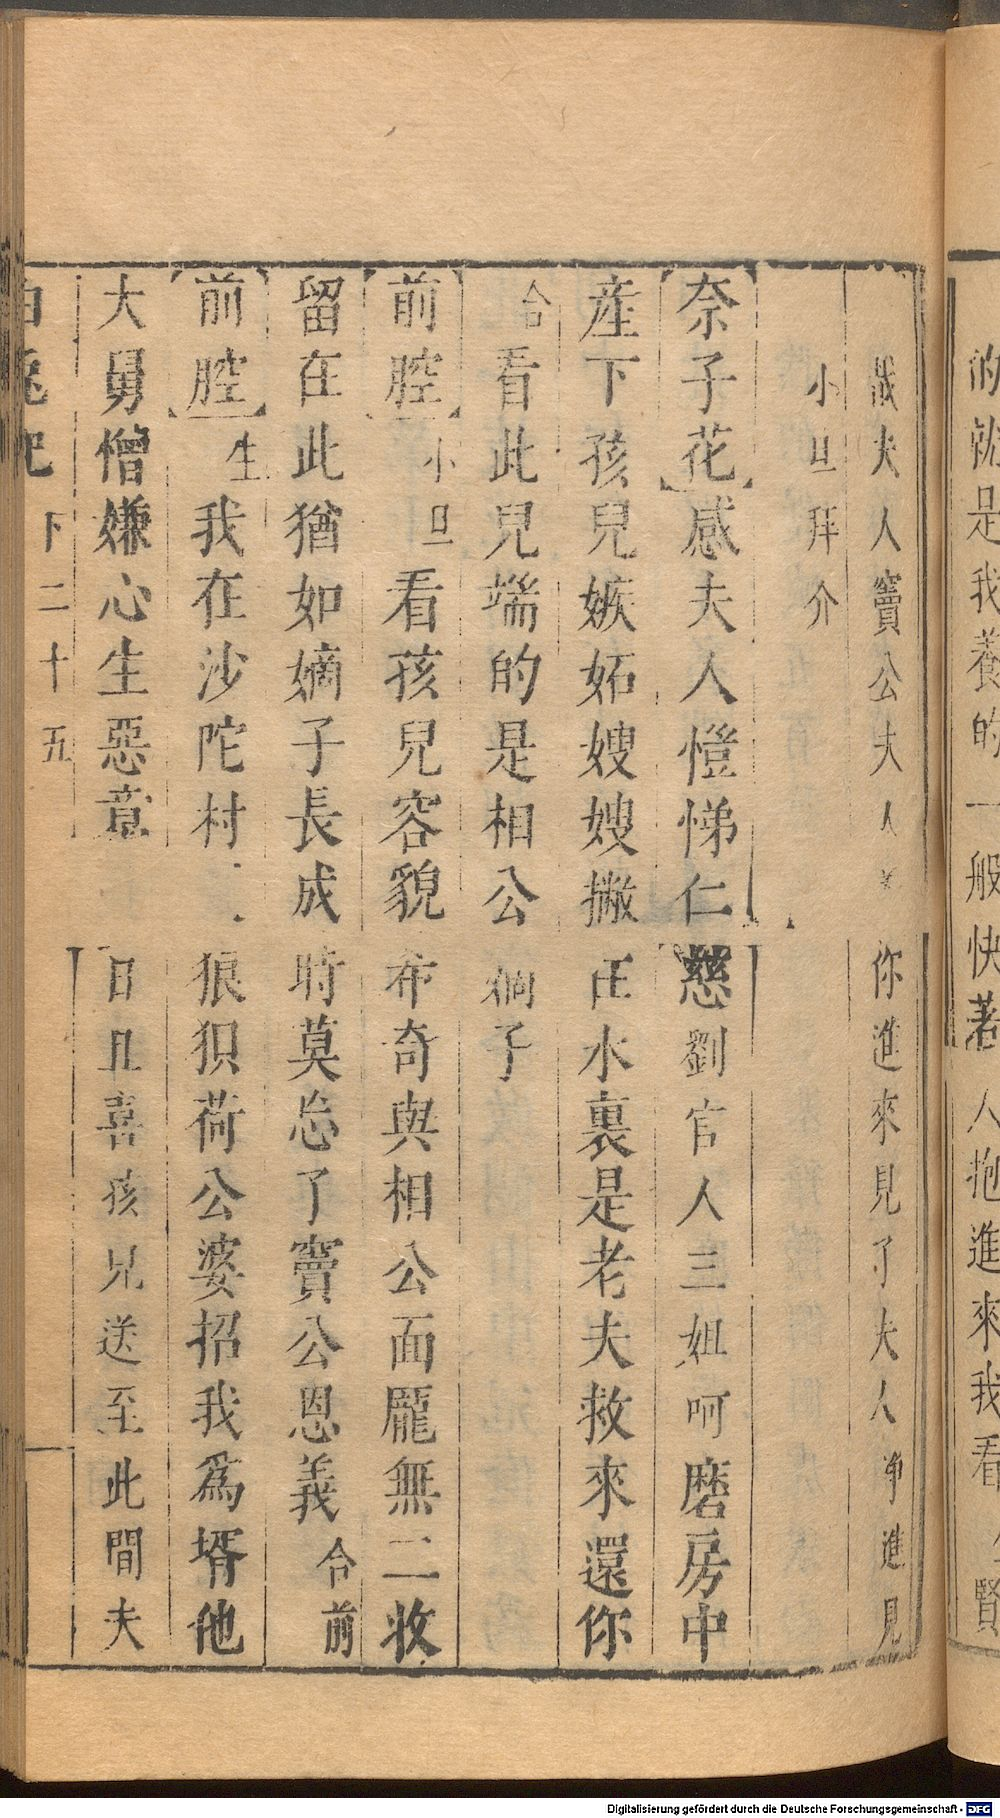 的就是我養的一般快著人抱進來我看生賢
哉夫人竇公夫人着你進來見了夫人淨進見
小旦拜介
【奈子花】感夫人愷悌仁慈劉官人三姐呵磨房中
産下孩兒嫉妬嫂嫂撇在水裏是老夫救來還你
合看此兒端的是相公嫡子
【前腔】小旦看孩兒容貌希奇與相公面龐無二收
留在此猶如嫡子長成時莫忘了竇公恩義合前
【前腔】生我在沙陀村狼狽荷公婆招我爲壻他
大舅憎嫌心生惡意日且喜孩兒送至此間夫
白兔記 下二十五
Digitalisierung gefördert durch die Deutsche Forschungsgemeinschaft - DFG